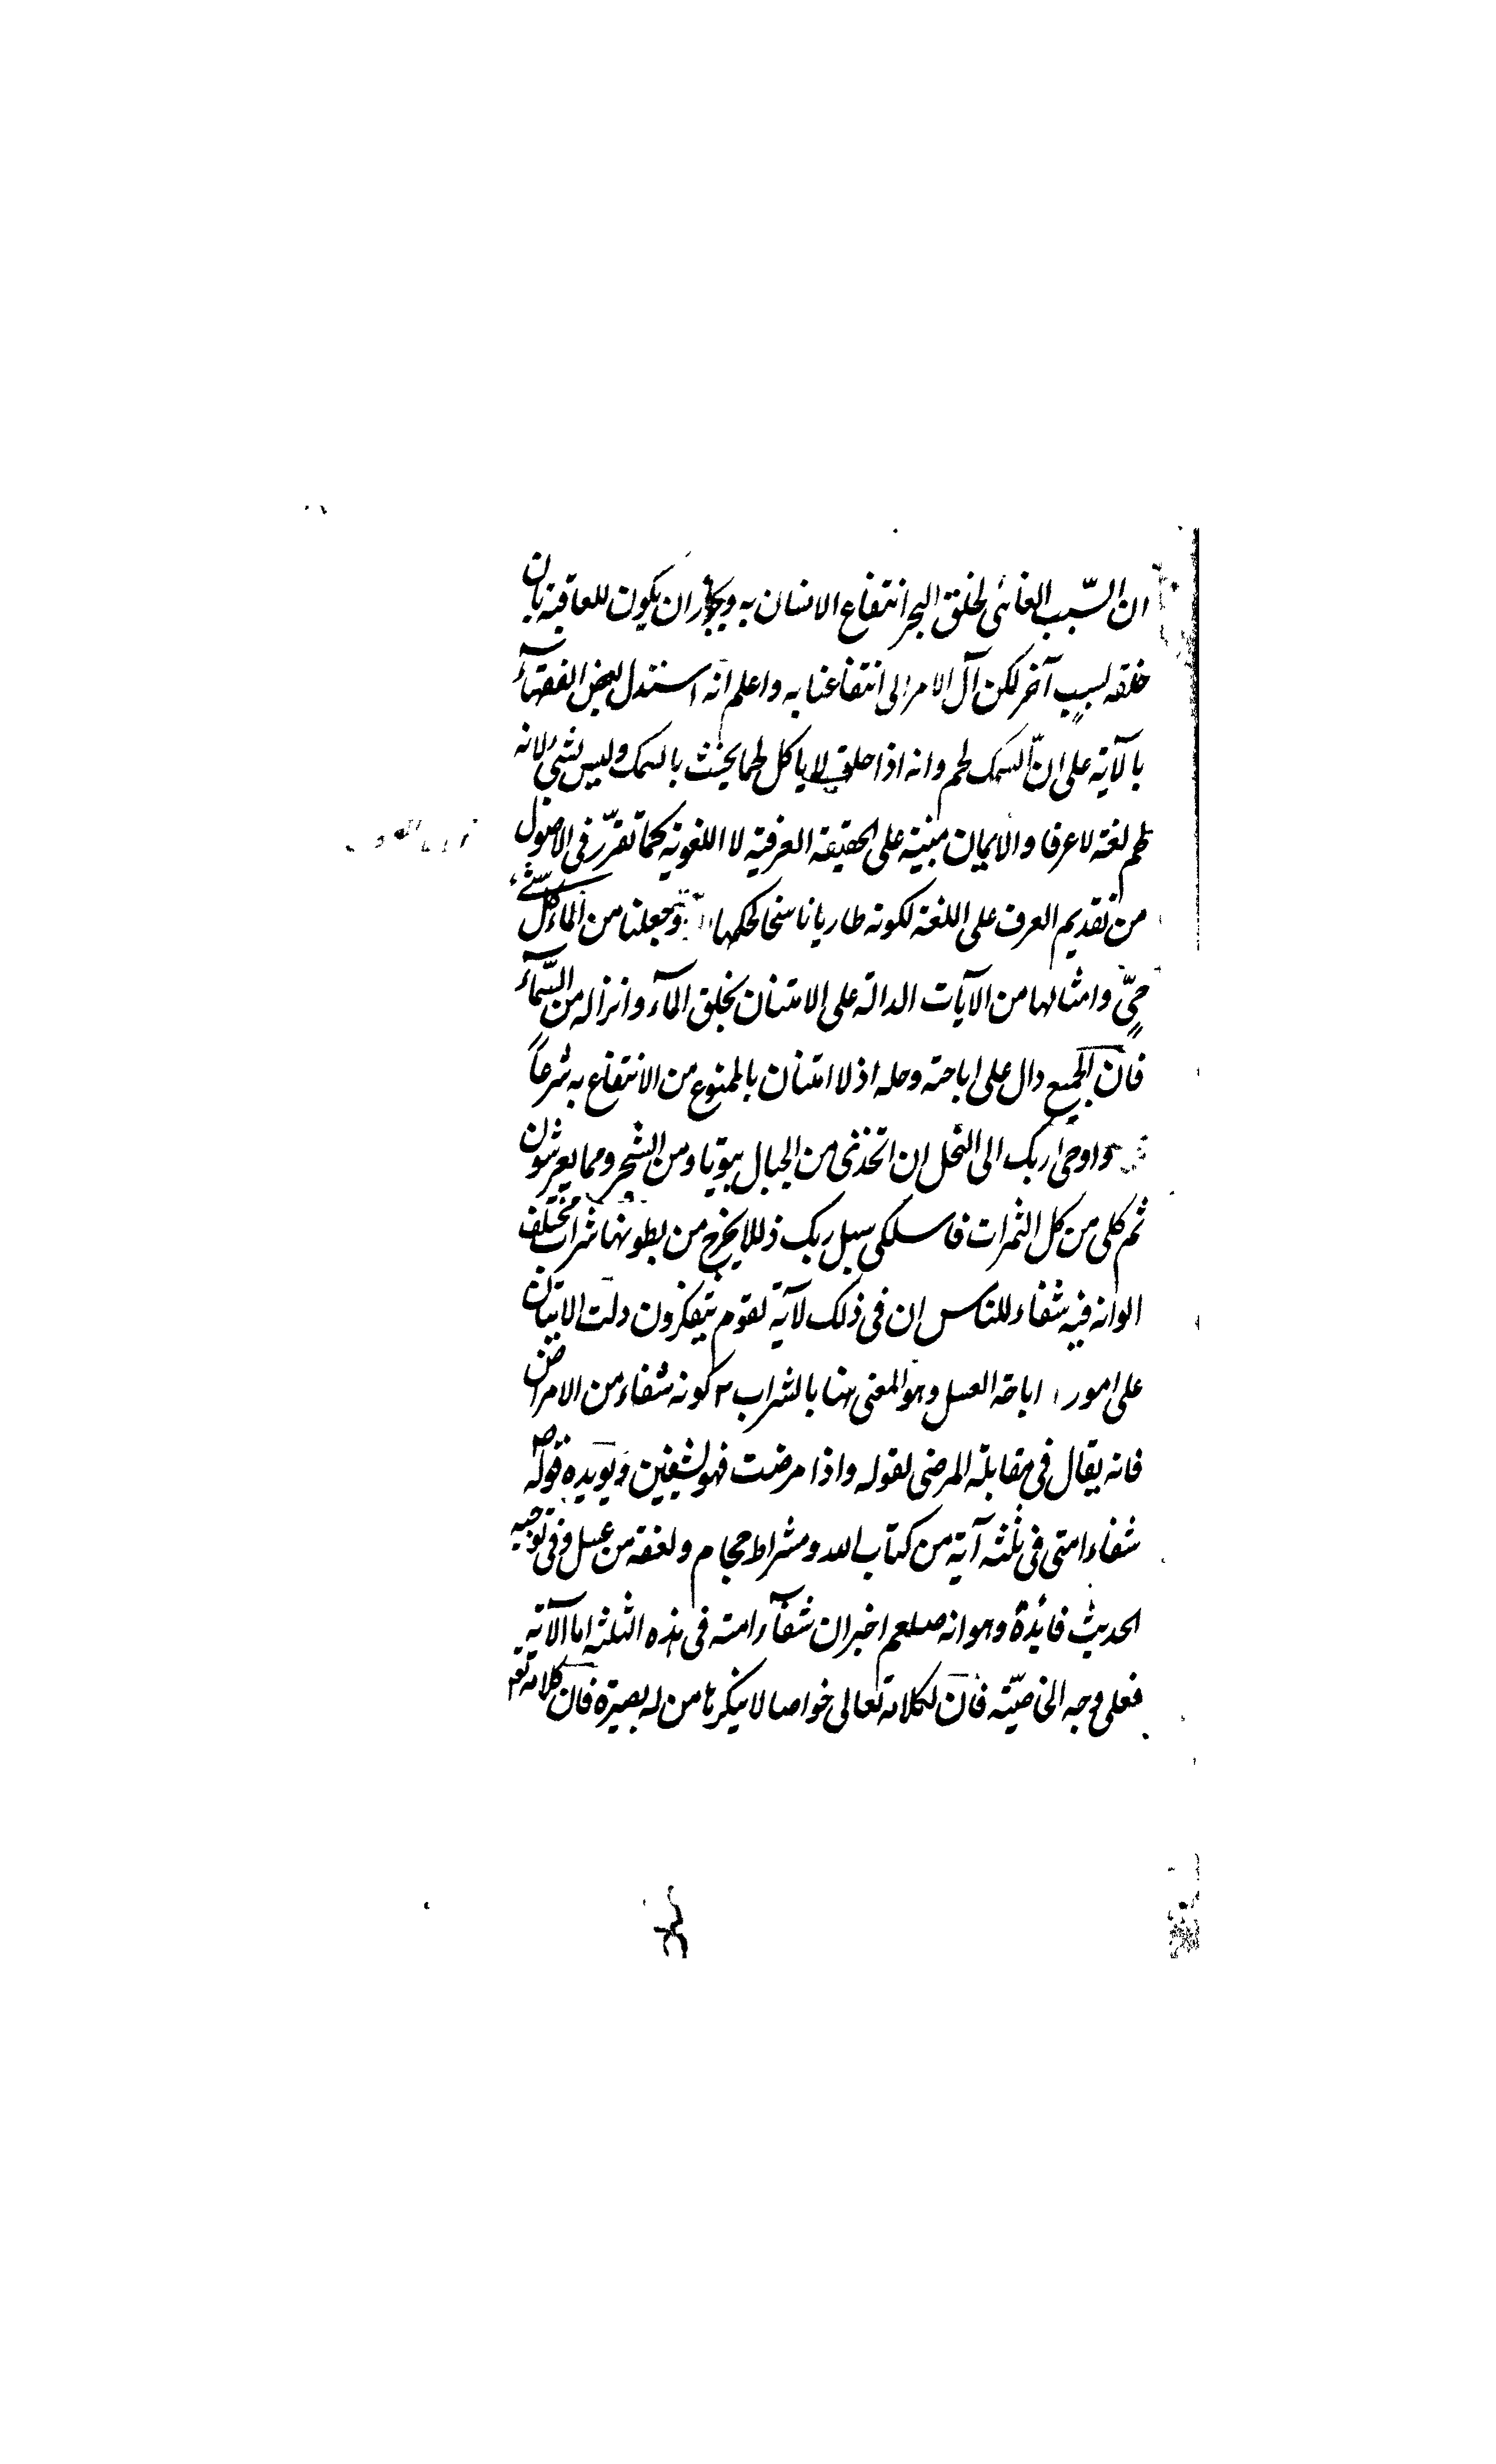 ان السّبب الغائى لخلق البحر انتفاع الانسان به ويجوز ان يكون للعاقبة بان
خلقه لسبب آخر لكن آل الامر الى انتفاعنا به واعلم انه استدل بعض الفقهآء
بالآية على انّ السمك لحم وانه اذا حلف لا ياكل لحما يحنث بالسمك وليس بشئ لانه
لحم لغة لا عرفا والايمان مبنية على الحقيقة العرفية لا اللغوية كما تقرّر فى الاصول
من تقديم العرف على اللغة لكونه طاريا ناسخا لحكمها وجعلنا من المآء كل شئ
حىّ وامثالها من الآيات الدالة على الامتنان بخلق المآء وانزاله من السّمآء
فان الجميع دال على اباحته وحله اذ لا امتنان بالممنوع من الانتفاع به شرعاً
واوحى ربك الى النحل ان اتخذى من الجبال بيوتا ومن الشجر ومما يعرشون
ثم كلى من كل الثمرات فاسلكى سبل ربك ذللا يخرج من بطونها شراب مختلف
الوانه فيه شفاء للناس ان فى ذلك لآية لقوم يتفكرون دلت الايتان
على امور ١ اباحة العسل وهو المعنى هنا بالشراب ٢ كونه شفاء من الامراض
فانه يقال فى مقابلة المرضى لقوله واذا مرضت فهو يشفين ويؤيده قوله ص
شفاء امتى فى ثلثه آية من كتاب الله ومشراط حجام ولعقة من عسل وفى توجيه
الحديث فايدة وهو انه صلعم اخبر ان شفآء امته فى هذه الثلثه اما الآية
فعلى وجه الخاصّيّة فان لكلامه تعالى خواصا لا ينكرها من له بصيرة فان كلامه تع